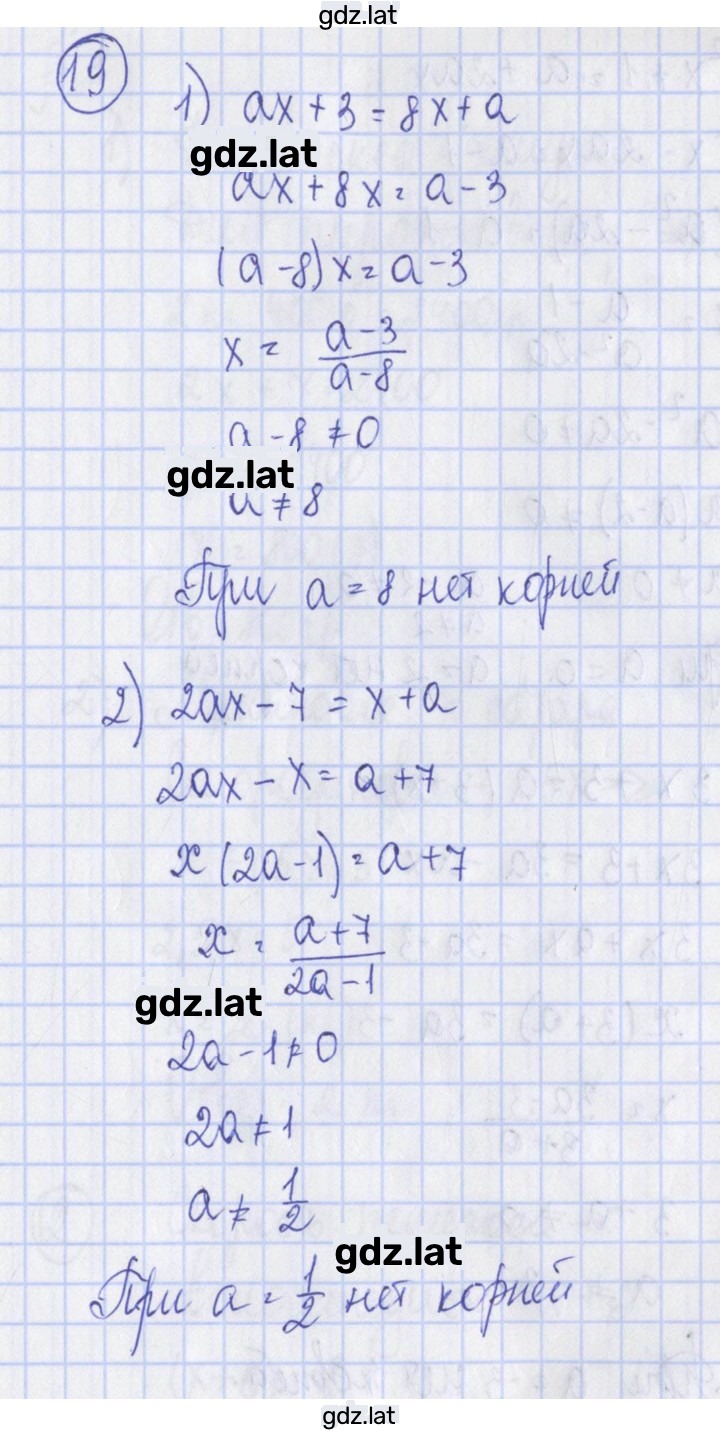 gdz.lat
19
1) ax + 3 = 8x + a
gdz.lat
ax + 8x = a - 3
(a - 8)x = a - 3
x = \frac{a - 3}{a - 8}
a - 8 ≠ 0
gdz.lat
a ≠ 8
При a = 8 нет корней
2) 2ax - 7 = x + a
2ax - x = a + 7
x(2a - 1) = a + 7
x = \frac{a + 7}{2a - 1}
gdz.lat
2a - 1 ≠ 0
2a ≠ 1
a ≠ \frac{1}{2}
gdz.lat
При a = \frac{1}{2} нет корней
gdz.lat